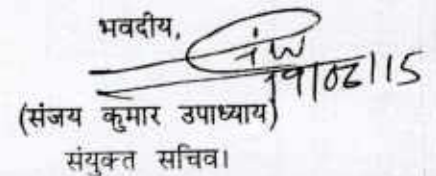 भवदीय,
19/02/15
(संजय कुमार उपाध्याय)
संयुक्त सचिव।